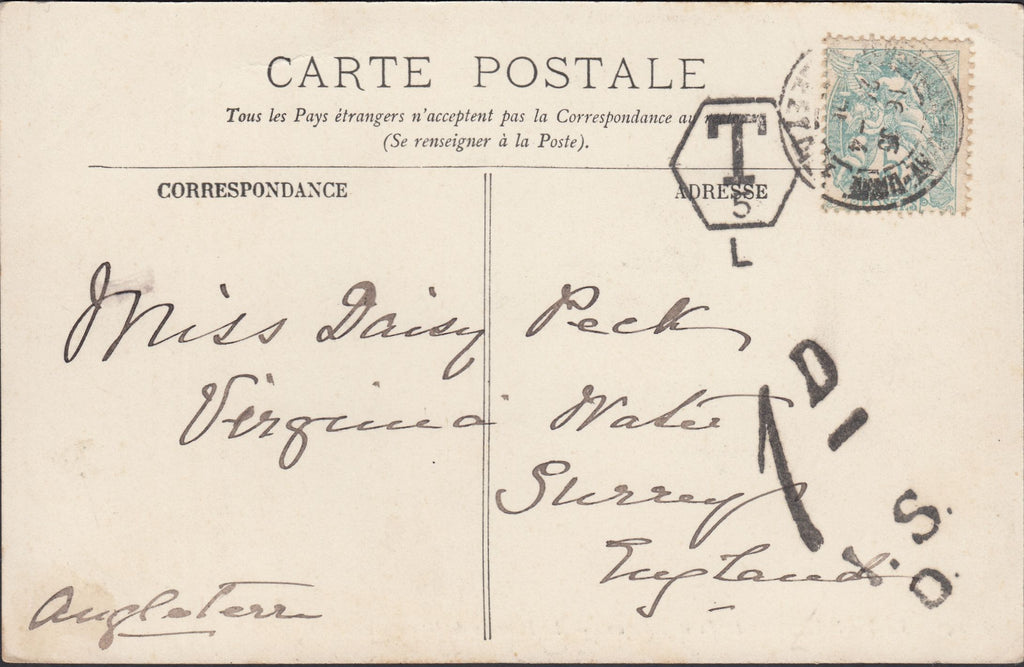 CARTE POSTALE
Tous les Pays étrangers n'acceptent pas la Correspondance au
(Se renseigner à la Poste).
CORRESPONDANCE
ADRESSE
T
5
L
Miss Daisy Peck
Virginia Water
Surrey
England
Angleterre
1D
X.S.O.